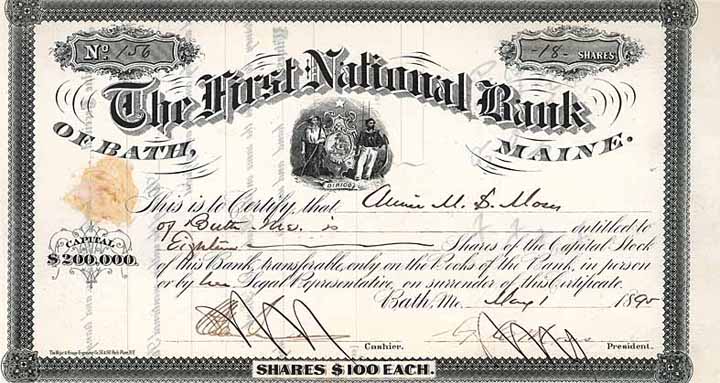 No. 156
-18- SHARES
The First National Bank
OF BATH, MAINE.
DIRIGO
This is to Certify, that Annie M. S. Moses
of Bath, Me. is entitled to
Eighteen Shares of the Capital Stock
CAPITAL
$200,000.
of this Bank, transferable, only on the Books of the Bank, in person
or by her Legal Representative, on surrender of this Certificate.
Bath, Me. May 1 1890
Cashier.
President.
SHARES $100 EACH.